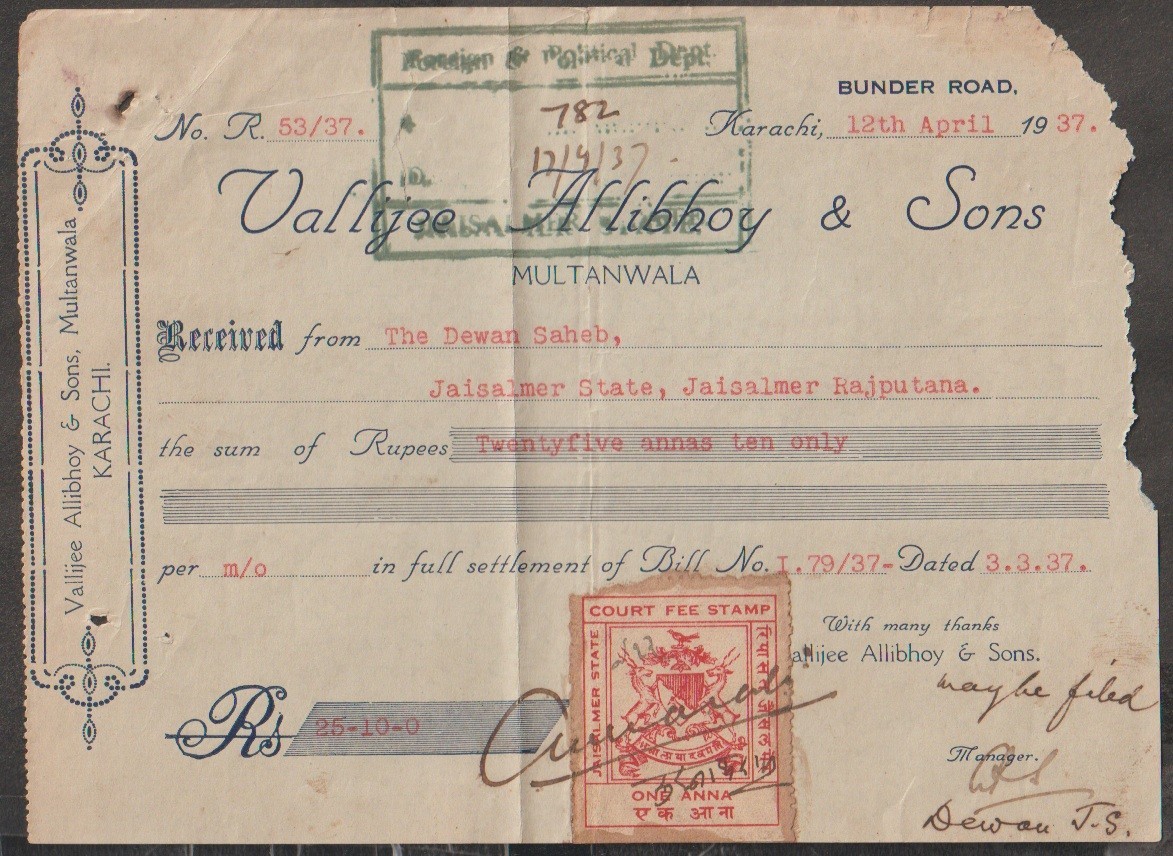 Foreign & Political Dept.
782
12/4/37.
JAISALMER STATE
BUNDER ROAD,
No. R. 53/37.
Karachi, 12th April 1937.
Vallijee Allibhoy & Sons
MULTANWALA
Vallijee Allibhoy & Sons, Multanwala
KARACHI.
Received from The Dewan Saheb,
Jaisalmer State, Jaisalmer Rajputana.
the sum of Rupees Twentyfive annas ten only
per m/o in full settlement of Bill No. I.79/37- Dated 3.3.37.
With many thanks
allijee Allibhoy & Sons.
may be filed
Rs 25-10-0
COURT FEE STAMP
JAISALMER STATE
रियासत जैसलमेर
ONE ANNA
एक आना
Manager.
Dewan J.S.